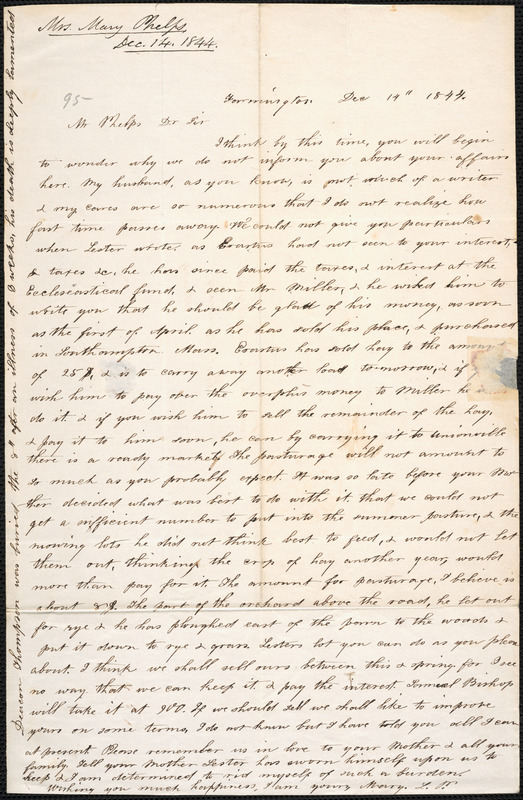 Mrs. Mary Phelps
Dec. 14. 1844.
95-
Farmington Dec 14" 1844.
Mr Phelps Dr Sir
I think by this time, you will begin
to wonder why we do not inform you about your affairs
here. My husband, as you know, is not much of a writer
& my cares are so numerous that I do not realize how
fast time passes away. We could not give you particulars
when Lester wrote. as Erastus had not seen to your interest,
& taxes &c, he has since paid the taxes, & interest at the
Ecclesiastical fund, & seen Mr Miller, & he wished him to
write you that he should be glad of his money, as soon
as the first of April. as he has sold his place, & purchased
in Southampton Mass. Erastus has sold hay to the amount
of 25 $, & is to carry away another load to-morrow, & if
wish him to pay over the overplus money to Miller he
do it. & if you wish him to sell the remainder of the hay,
& pay it to him soon, he can by carrying it to Unionville
there is a ready market, The pasturage will not amount to
so much as you probably expect. It was so late before your
ther decided what was best to do with it. that we could not
get a sufficient number to put into the summer pasture, & the
mowing lots he did not think best to feed, & would not let
them out, thinking the crop of hay another year, would
more than pay for it. The amount for pasturage, I believe is
about 8 $. The part of the orchard above the road, he let out
for rye & he has ploughed east of the barn to the woods &
put it down to rye & grass. Lesters lot you can do as you please
about. I think we shall sell ours between this & spring. for I see
no way that we can keep it & pay the interest. Bishop
will take it at 900. If we should sell we shall like to improve
yours on some terms, I do not know but I have told you all I can
at present. Please remember us in love to your Mother & all your
family. Tell your Mother Lester has sworn himself upon us to
keep & I am determined to rid myself of such a burden.
Wishing you much happiness, I am yours, Mary. P
Deacon Thompson was buried the 8" after an illness of 3 weeks, his death is deeply lamented